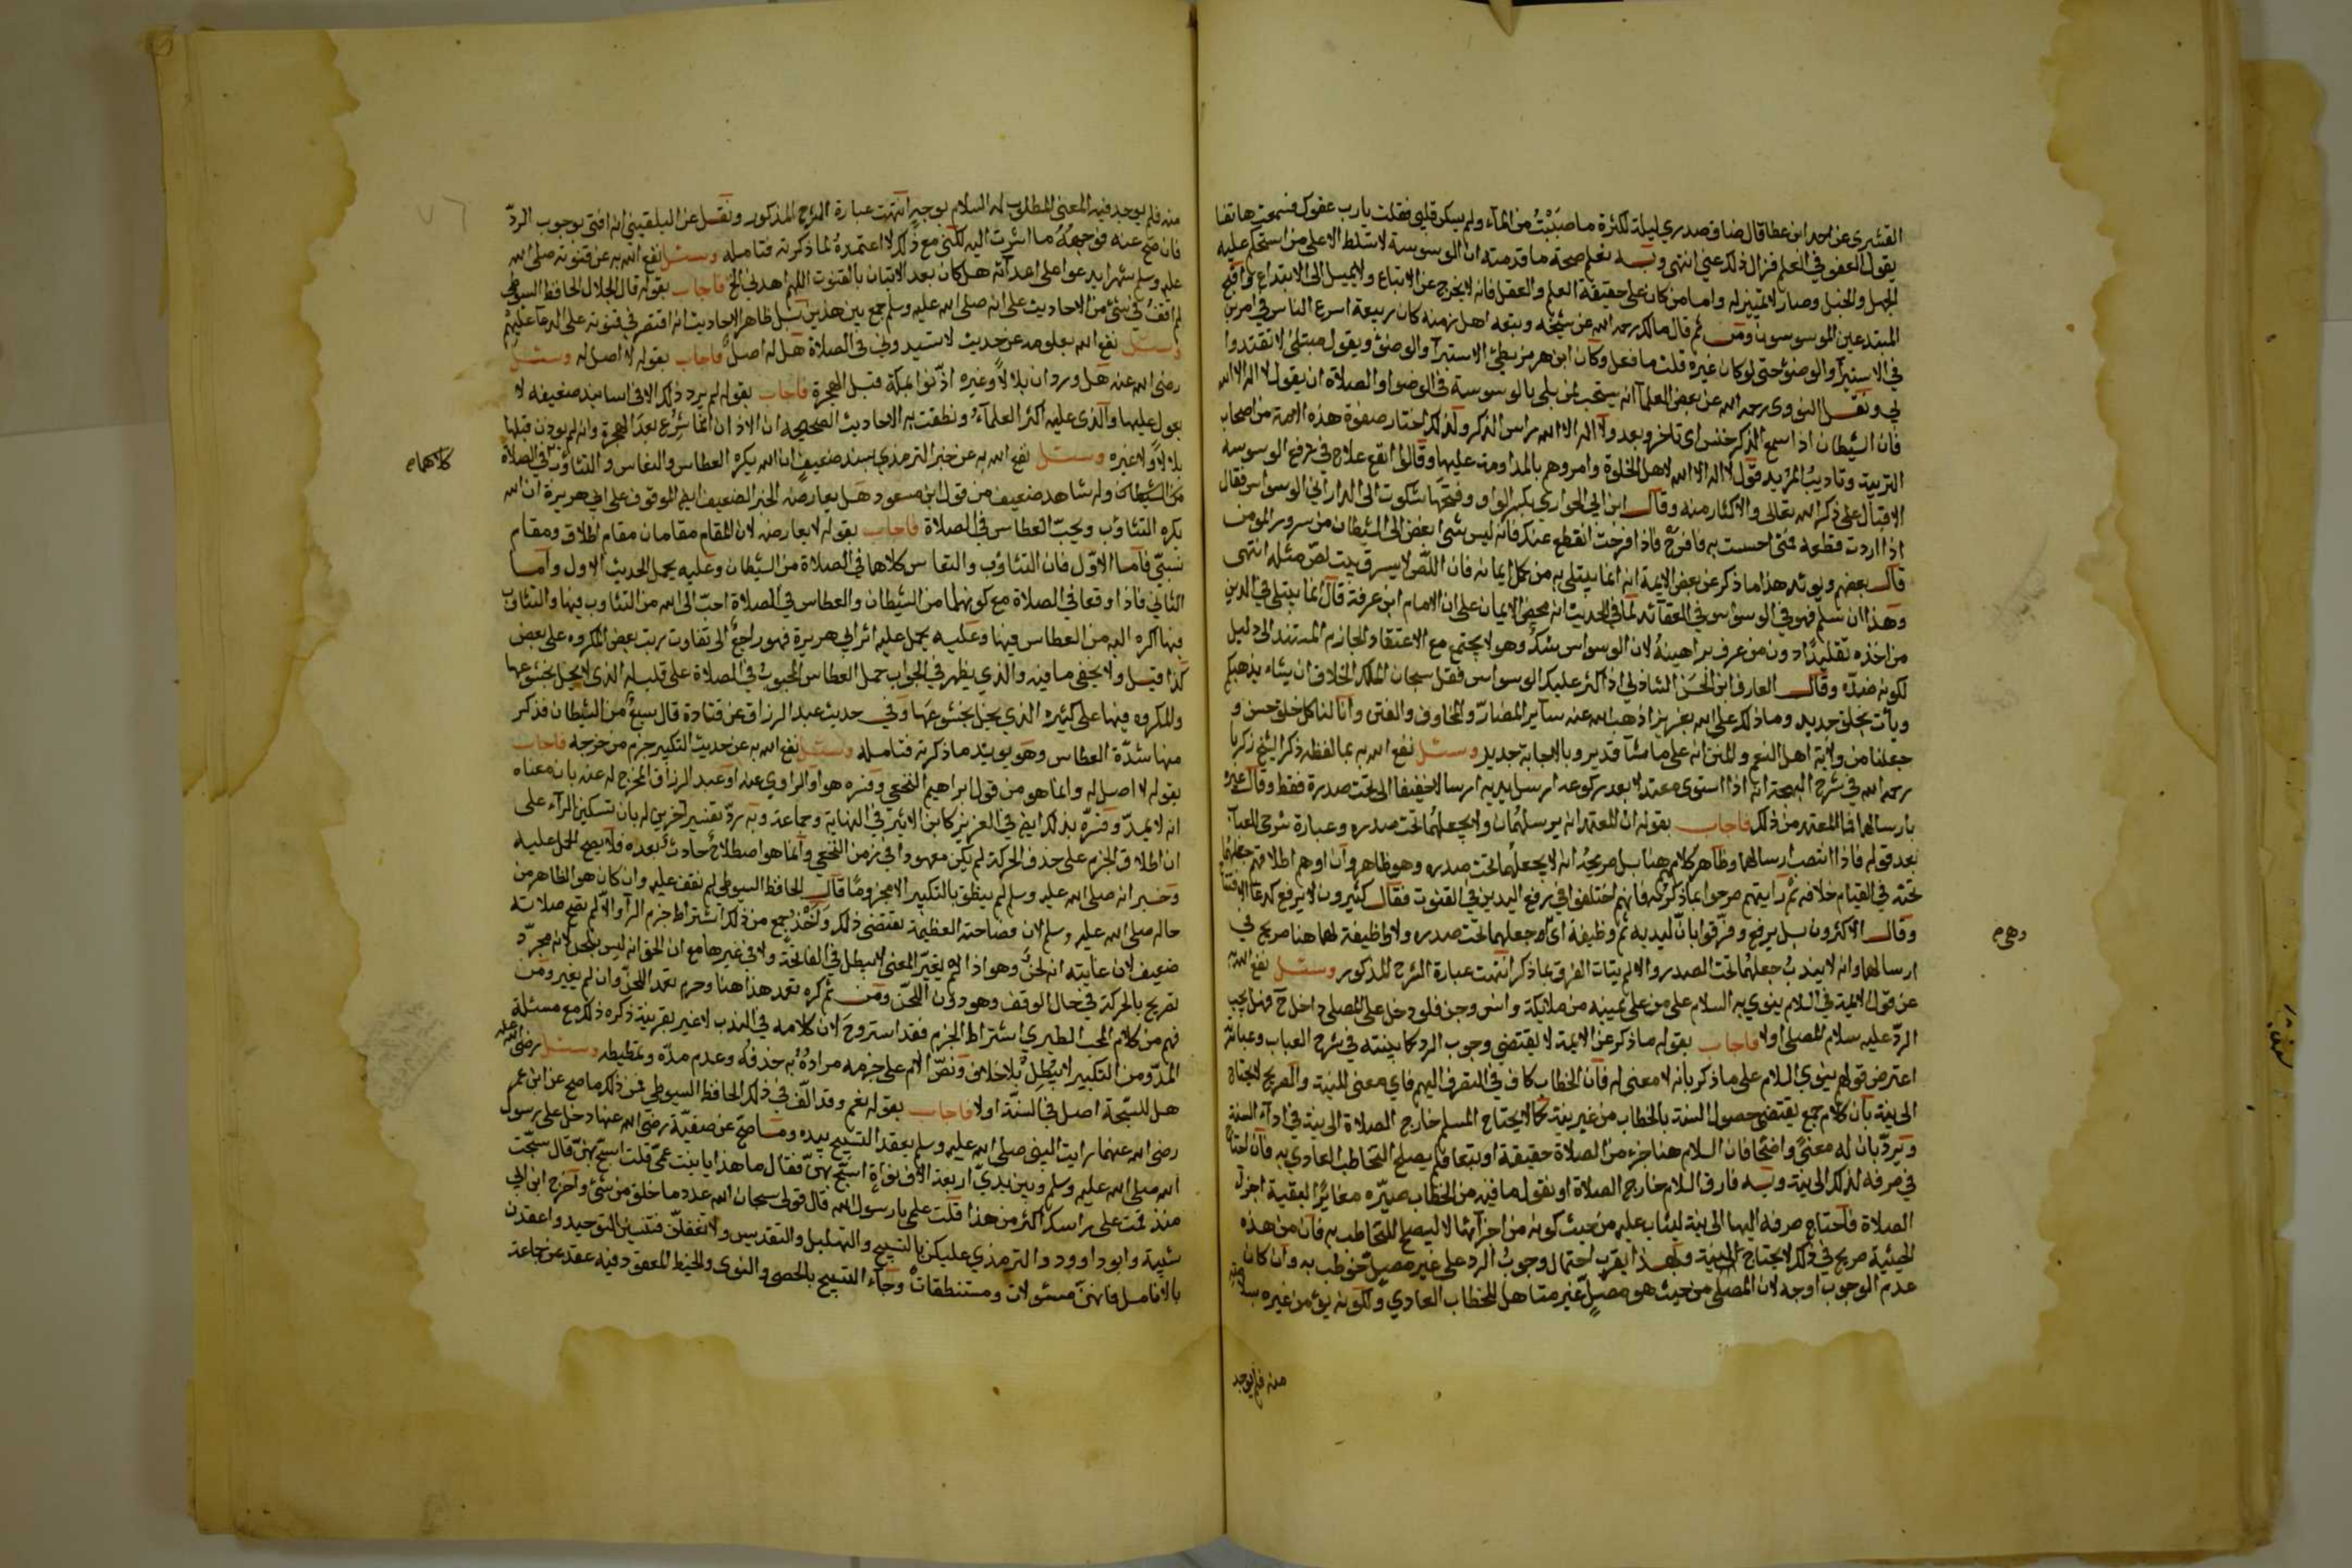 القشيرى عن احمد ابن عطا قال ضاق صدري ليلة لكثرة ما صببت من الماء ولم يسكن قلبي فقلت يارب عفوك فسمعت هاتفا
يقول العفو في العلم فزال ذلك عني انتهى وبه تعلم صحة ما قدمته ان الوسوسة لا تسلط الا على من استحكم عليه
الجهل والخبل وصار لا تمييز له واما من كان على حقيقة العلم والعقل فانه لا يخرج عن الاتباع ولا يميل الى الابتداع واقبح
المبتدعين الموسوسون ومن ثم قال مالك رحمه الله عن شيخه وبقية اهل زمنه كان ربيعة اسرع الناس في امرين
في الاستبرآ والوضوء حتى لو كان غيره قلت ما فعل وكان ابن هرمز بطئ الاستبرآ والوضوء ويقول مبتلى لا تقتدوا
بي ونقل النووى رحمه الله عن بعض العلما انه يستحب لمن بلي بالوسوسة في الوضوا والصلاة ان يقول لا اله الا الله
فان الشيطان اذا سمع الذكر خنس اى تاخر وبعد ولا اله الا الله راس الذكر ولذلك اختار صفوة هذه الامة من اصحاب
التربية وتاديب المريد قول لا اله الا الله لاهل الخلوة وامروهم بالمداومة عليها وقالوا انفع علاج في دفع الوسوسة
الاقبال على ذكر الله تعالى والاكثار منه وقال ابن ابي الحواري بكسر الواو وفتحها شكوت الى الداراني الوسواس فقال
اذا اردت قطعه فمتى احسست به فافرح فاذا فرحت انقطع عنك فانه ليس شئ ابغض الى الشيطان من سرور المومن
قال بعضهم ويويده هذا ما ذكر عن بعض الايمة انه انما يبتلى به من كمل ايمانه فان اللص لا يسرق بيت لص مثله انتهى
وهذا ان سلم فهو في الوسواس في العقائد لما في الحديث انه محض الايمان على ان الامام ابن عرفة قال انما يبتلى في الدين
من اخذه تقليدا دون من عرف براهينه لان الوسواس شك وهو لا يجتمع مع الاعتقاد الجازم المستند الى دليل
لكونه ضده وقال العارف ابن الحسن الشاذلي اذا كثر عليك الوسواس فقل سبحان الملك الخلاق ان يشاء يذهبكم
ويات بخلق جديد وما ذلك على الله بعزيز اذهب الله عنه ساير المضار والمخاوف والفتن وانالنا كل خلق حسن و
جعلنا من ولاية اهل النعم والمنن انه على ما شآ قدير وبالاجابة جدير وسئل نفع الله به بما لفظه ذكر الشيخ زكريا
رحمه الله في شرح البهجة انه اذا استوى معتدلا بعد ركوعه ارسل يديه ارسالا خفيفا الى تحت صدره فقط وقال غيره
بارسالهما فما المعتمد من ذلك فاجاب بقوله ان المعتمد انه يرسلهما ولا يجعلهما تحت صدره وعبارة شرحي للعباب
بعد قوله فاذا انتصب ارسالهما وظاهر كلامهم هنا بل صريحه انه لا يجعلهما تحت صدره وهو ظاهر وان اوهم اطلاقهم جعلهما
تحته في القيام خلافه ثم رايتهم صرحوا بما ذكرته فانهم اختلفوا في رفع اليدين في القنوت فقال كثيرون لا يرفع كدعا الافتتاح
وقال الاكثرون بل يرفع وفرقوا بان ليديه ثم وظيفة اى وهي جعلهما تحت صدره ولا وظيفة لهما هنا صريح في
ارسالهما وانه لا يندب جعلهما تحت الصدر والا لم يتات الفرق بما ذكر انتهت عبارة الشرح المذكور وسئل نفع الله به
عن قول الايمة في السلام ينوي به السلام على من على يمينه من ملائكة وانس وجن فلو دخل على المصلى داخل فهل يجب
الرد عليه سلام المصلى اولا فاجاب بقوله ما ذكر عن الايمة لا يقتضي وجوب الرد كما بينته في شرح العباب وعبارته
اعترض قولهم ينوي السلام على ما ذكر بانه لا معنى له فان الخطاب كاف في الصرف اليهم فاي معنى للنية والصريح لا يحتاج
الى نية بان كلام جمع يقتضي حصول السنة بالخطاب من غير نية كما لا يحتاج المسلم خارج الصلاة الى نية في ادآء السنة
ويرد بان له معنى واضحا فان السلام هنا جزء من الصلاة حقيقة او تبعا فلم يصلح التخاطب العادي به فان احتاج
في صرفه لذلك الى نية وبه فارق السلام خارج الصلاة او نقول ما فيه من الخطاب صيره مغايرا لبقية اجزاء
الصلاة فاحتاج صرفه اليها الى نية ليثاب عليه من حيث كونه من اجزائها لا ليصلح للتخاطب به فان من هذه
الحيثية صريح في ذلك لا يحتاج لنية وبهذا يقرب احتمال وجوب الرد على غير مصل خوطب به وان كان
عدم الوجوب اوجه لان المصلى من حيث هو مصل غير متاهل للخطاب العادي ولكونه يؤمن غيره بسلامه
وهى م
منه فلم يوجد
منه فلم يوجد فيه المعنى المطلوب له السلام بوجه انتهت عبارة الشرح المذكور ونقل عن البلقيني انه افتى بوجوب الرد
فان صح عنه فوجهه ما اشرت اليه لكني مع ذلك لا اعتمده لما ذكرته فتامله وسئل نفع الله به عن قنوته صلى الله
عليه وسلم شهرا يدعوا على اعدآئه هل كان بعد الاتيان بالقنوت اللهم اهدني الخ فاجاب بقوله قال الجلال الحافظ السيوطي
لم اقف في شئ من الاحاديث على انه صلى الله عليه وسلم جمع بين هذين بل ظاهر الاحاديث انه اقتصر في قنوته على الدعآ عليهم
وسئل نفع الله بعلومه عن حديث لا تسيدوني في الصلاة هل له اصل فاجاب بقوله لا اصل له وسئل
رضى الله عنه هل ورد ان بلالا وغيره اذنوا بمكة قبل الهجرة فاجاب بقوله لم يرد ذلك الا في اسانيد ضعيفه لا
يعول عليها والذى عليه اكثر العلمآء ونطقت به الاحاديث الصحيحه ان الاذان انما شرع بعد الهجرة وانه لم يوذن قبلها
بلال ولا غيره وسئل نفع الله به عن خبر الترمذي بسند ضعيف ان الله يكره العطاس والنعاس والتثاؤب في الصلاة
كلاهما م
من الشيطان وله شاهد ضعيف من قول ابن مسعود هل يعارضه الخبر الضعيف ايضا الموقوف على ابي هريرة ان الله
يكره التثاؤب ويحب العطاس في الصلاة فاجاب بقوله لا يعارضه لان المقام مقامان مقام اطلاق ومقام
نسبي فاما الاول فان التثاؤب والنعاس كلاها في الصلاة من الشيطان وعليه يحمل الحديث الاول واما
الثاني فاذا وقعا في الصلاة مع كونهما من الشيطان والعطاس في الصلاة احب الى الله من التثاوب فيها والتثاوب
فيها اكره اليه من العطاس فيها وعليه يحمل عليه اثر ابي هريرة فهو راجع الى تفاوت رتب بعض المكروه على بعض
كذا قيل ولا يخفى ما فيه والذي يظهر في الجواب حمل العطاس المحبوب في الصلاة على قليله الذى لا يخل بخشوعها
والمكروه فيها على كثيره الذي يخل بخشوعها وفي حديث عبد الرزاق عن قتادة قال سبع من الشيطان فذكر
منها شدة العطاس وهو يويد ما ذكرته فتامله وسئل نفع الله به عن حديث التكبير جزم من خرجه فاجاب
بقوله لا اصل له وانما هو من قول ابراهيم النخعي وفسره هو او الراوي عنه او عبد الرزاق المخرج له عنه بان معناه
انه لا يمد وفسره بذلك ايضا في العزيز كابن الاثير في النهاية وجماعة وبه يرد تفسير آخرين له بان تسكين الرآء على
ان اطلاق الجزم على حذف الحركة لم يكن معهودا في زمن النخعي وانما هو اصطلاح حادث بعده فلا يصح الحمل عليه
وخبر انه صلى الله عليه وسلم لم ينطق بالتكبير الا مجزوما قال الحافظ السيوطي لم نقف عليه وان كان هو الظاهر من
حاله صلى الله عليه وسلم لان فصاحته العظيمة تقتضي ذلك واخذ جمع من ذلك اشتراط جزم الرآ والا لم تصح صلاته
ضعيف لان غايته انه لحن وهو اذا لم يغير المعنى لا يبطل في الفاتحة ولا في غيرها مع ان الحق انه ليس بلحن لانه مجرد
تصريح بالحركة في حال الوقف وهو دون اللحن ومن ثم كره تعمد هذا هنا وحرم تعمد اللحن وان لم يغير ومن
فهم من كلام المحب الطبري اشتراط الجزم فقد استروح لان كلامه في الندب لا غير بقرينة ذكره ذلك مع مسئلة
المد ومن التكبير لا يبطل بلا خلاف ونص الام على جزمه مراده به حذفه وعدم مده وتمطيطه وسئل رضى الله عنه
هل للسبحة اصل في السنة اولا فاجاب بقوله نعم وقد الف في ذلك الحافظ السيوطي فمن ذلك ما صح عن ابن عمر
رضى الله عنهما رايت النبى صلى الله عليه وسلم يعقد التسبيح بيده وما صح عن صفية رضى الله عنها دخل على رسول
الله صلى الله عليه وسلم وبين يدي اربعة الاف نواة اسبح بهن فقال ما هذا يا بنت عمى قلت اسبح بهن قال سبحت
منذ قمت على راسك اكثر من هذا قلت علمني يا رسول الله قال قولى سبحان الله عدد ما خلق من شئ واخرج ابن ابي
شيبة وابو داوود والترمذي عليكن بالتسبيح والتهليل والتقديس ولا تغفلن فتنسين التوحيد واعقدن
بالانامل فانهن مسئولات ومستنطقات وجاء التسبيح بالحصى والنوى والخيط المعقود فيه عقد عن جماعة